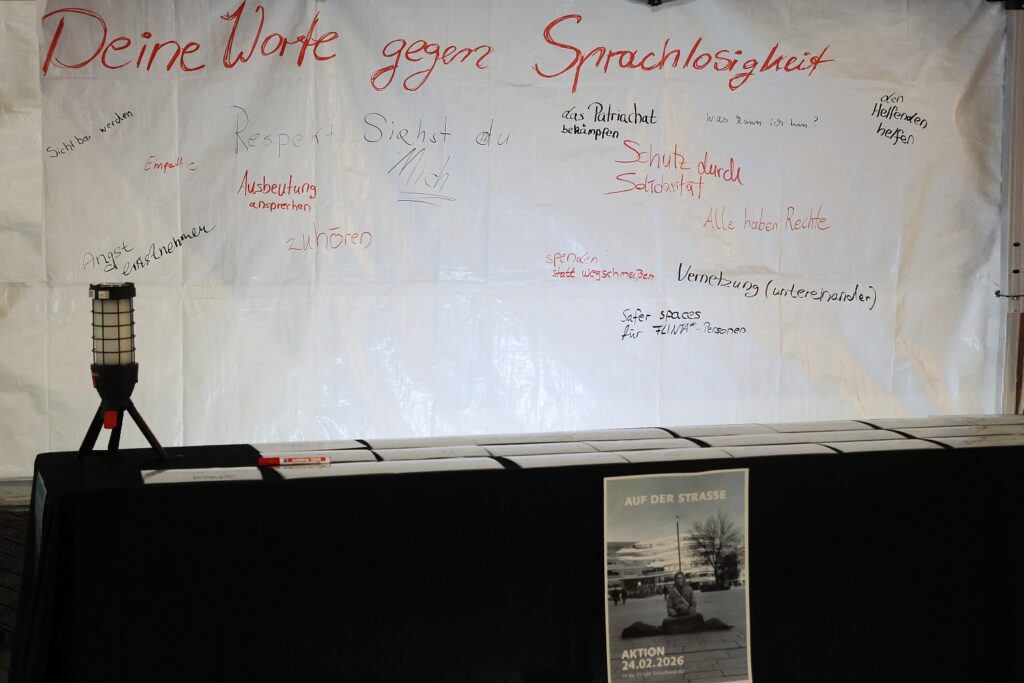 Deine Worte gegen Sprachlosigkeit
Sichtbar werden
Empathie
Respekt
Siehst du
Mich
Ausbeutung
ansprechen
zuhören
Angst
ernstnehmen
das Patriachat
bekämpfen
was kann ich tun?
den
Helfenden
helfen
Schutz durch
Solidarität
Alle haben Rechte
spenden
statt wegschmeißen
Vernetzung (untereinander)
Safer spaces
für FLINTA*-Personen
AUF DER STRASSE
AKTION
24.02.2026